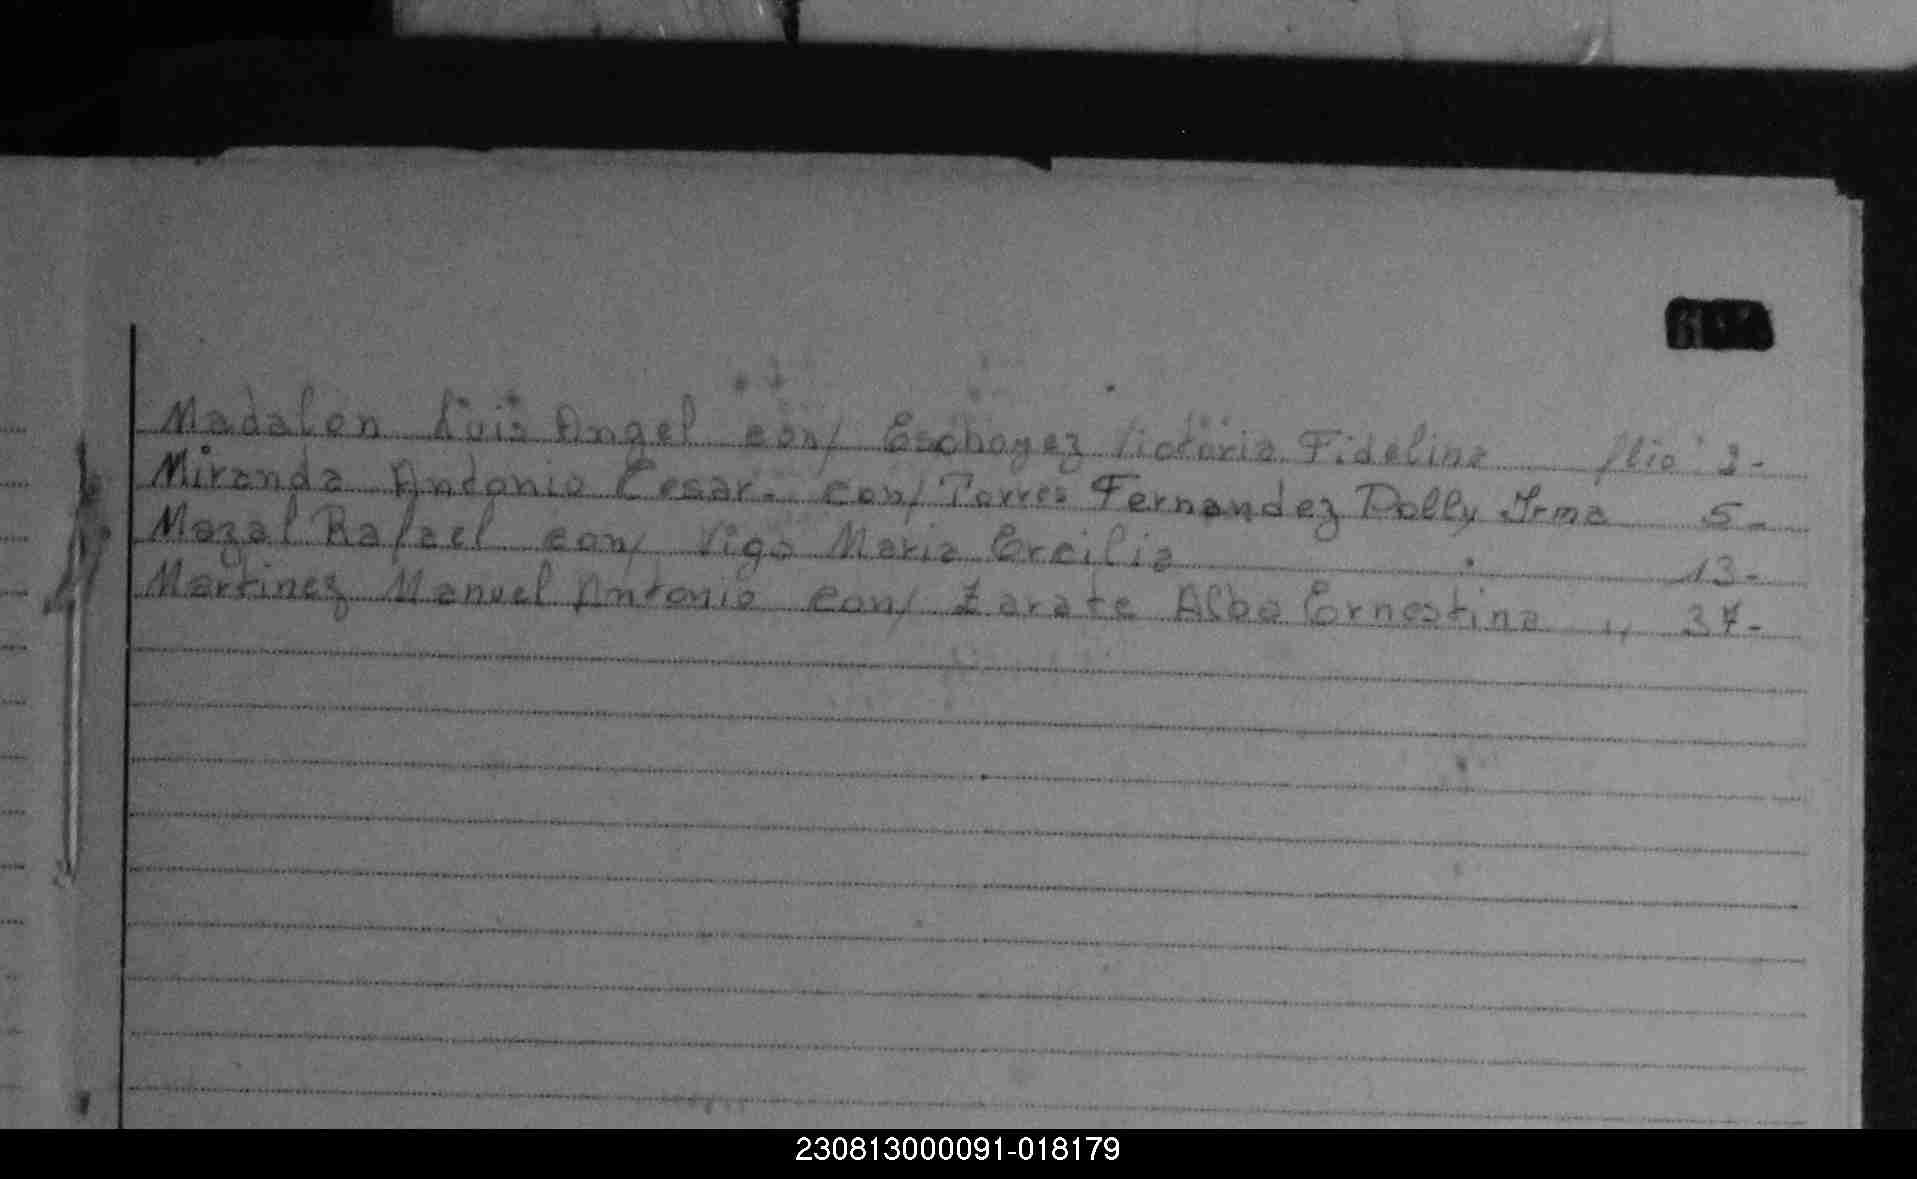 Madalon Luis Angel con/ Eschoyez Victoria Fidelina flio 2-
Miranda Antonio Cesar. con/ Torres Fernandez Dolly Irma 5-
Mazal Rafael con/ Vigo Maria Ercilia 13-
Martinez Manuel Antonio con/ Zarate Alba Ernestina " 37-
230813000091-018179